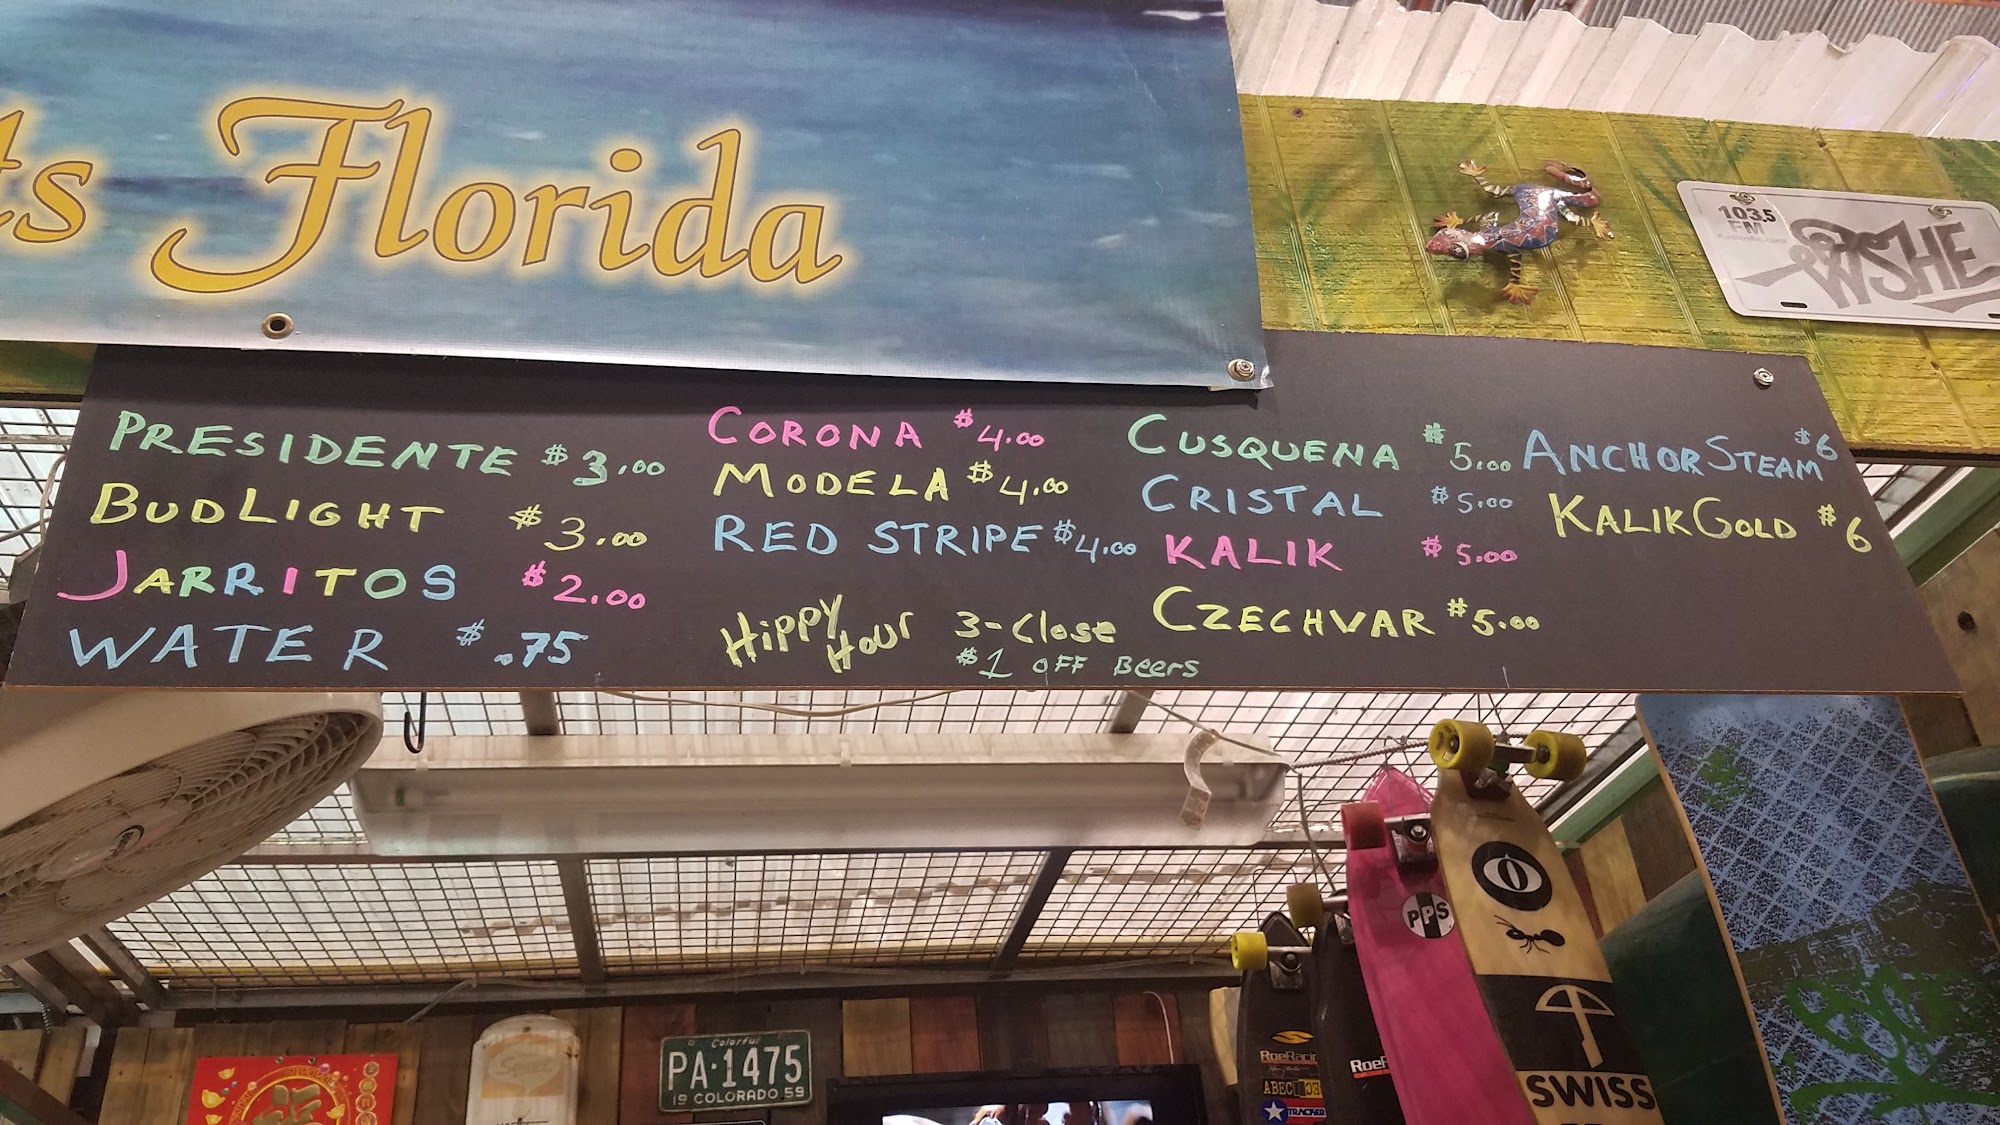 ts Florida
103.5
FM
WSHE
PRESIDENTE $3.00
BUDLIGHT $3.00
JARRITOS $2.00
WATER $.75
CORONA $4.00
MODELA $4.00
RED STRIPE $4.00
HiPPY HOUR 3-Close
$1 OFF Beers
CUSQUENA $5.00
CRISTAL $5.00
KALIK $5.00
CZECHVAR $5.00
ANCHOR STEAM $6
KALIK GOLD $6
PPS
SWISS
RoeRacing
ABEC
TRACKER
Colorful
PA·1475
19 COLORADO 59